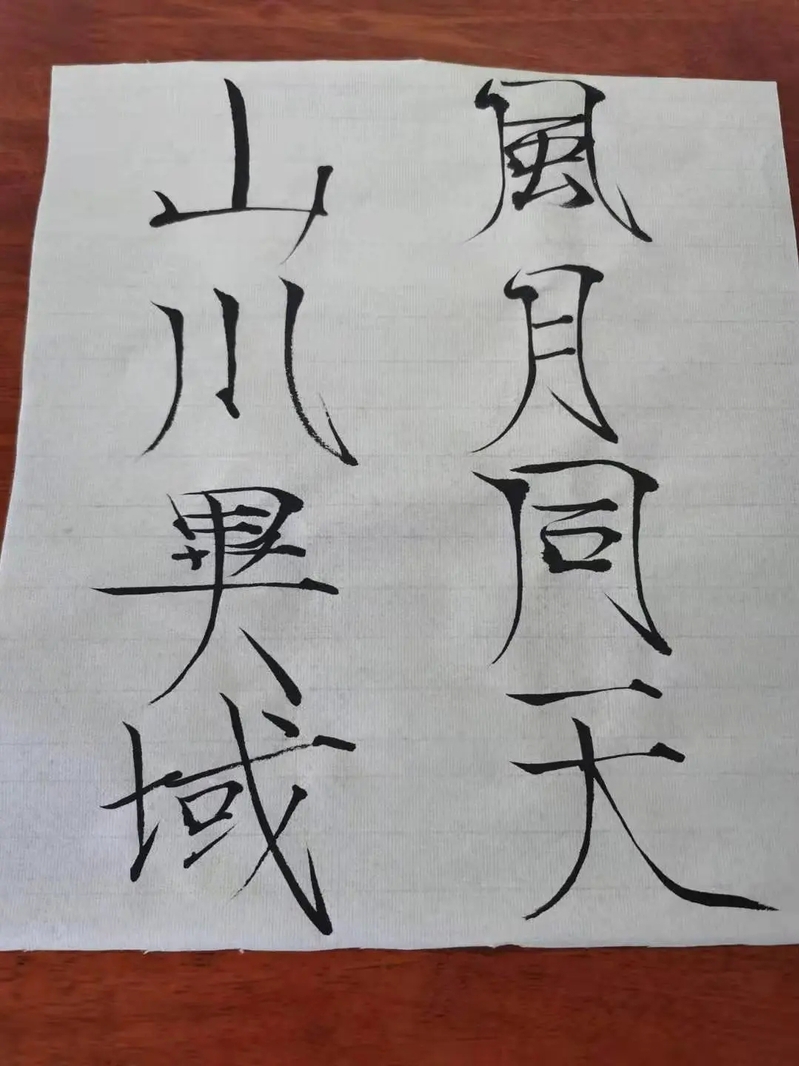 風月同天
山川異域